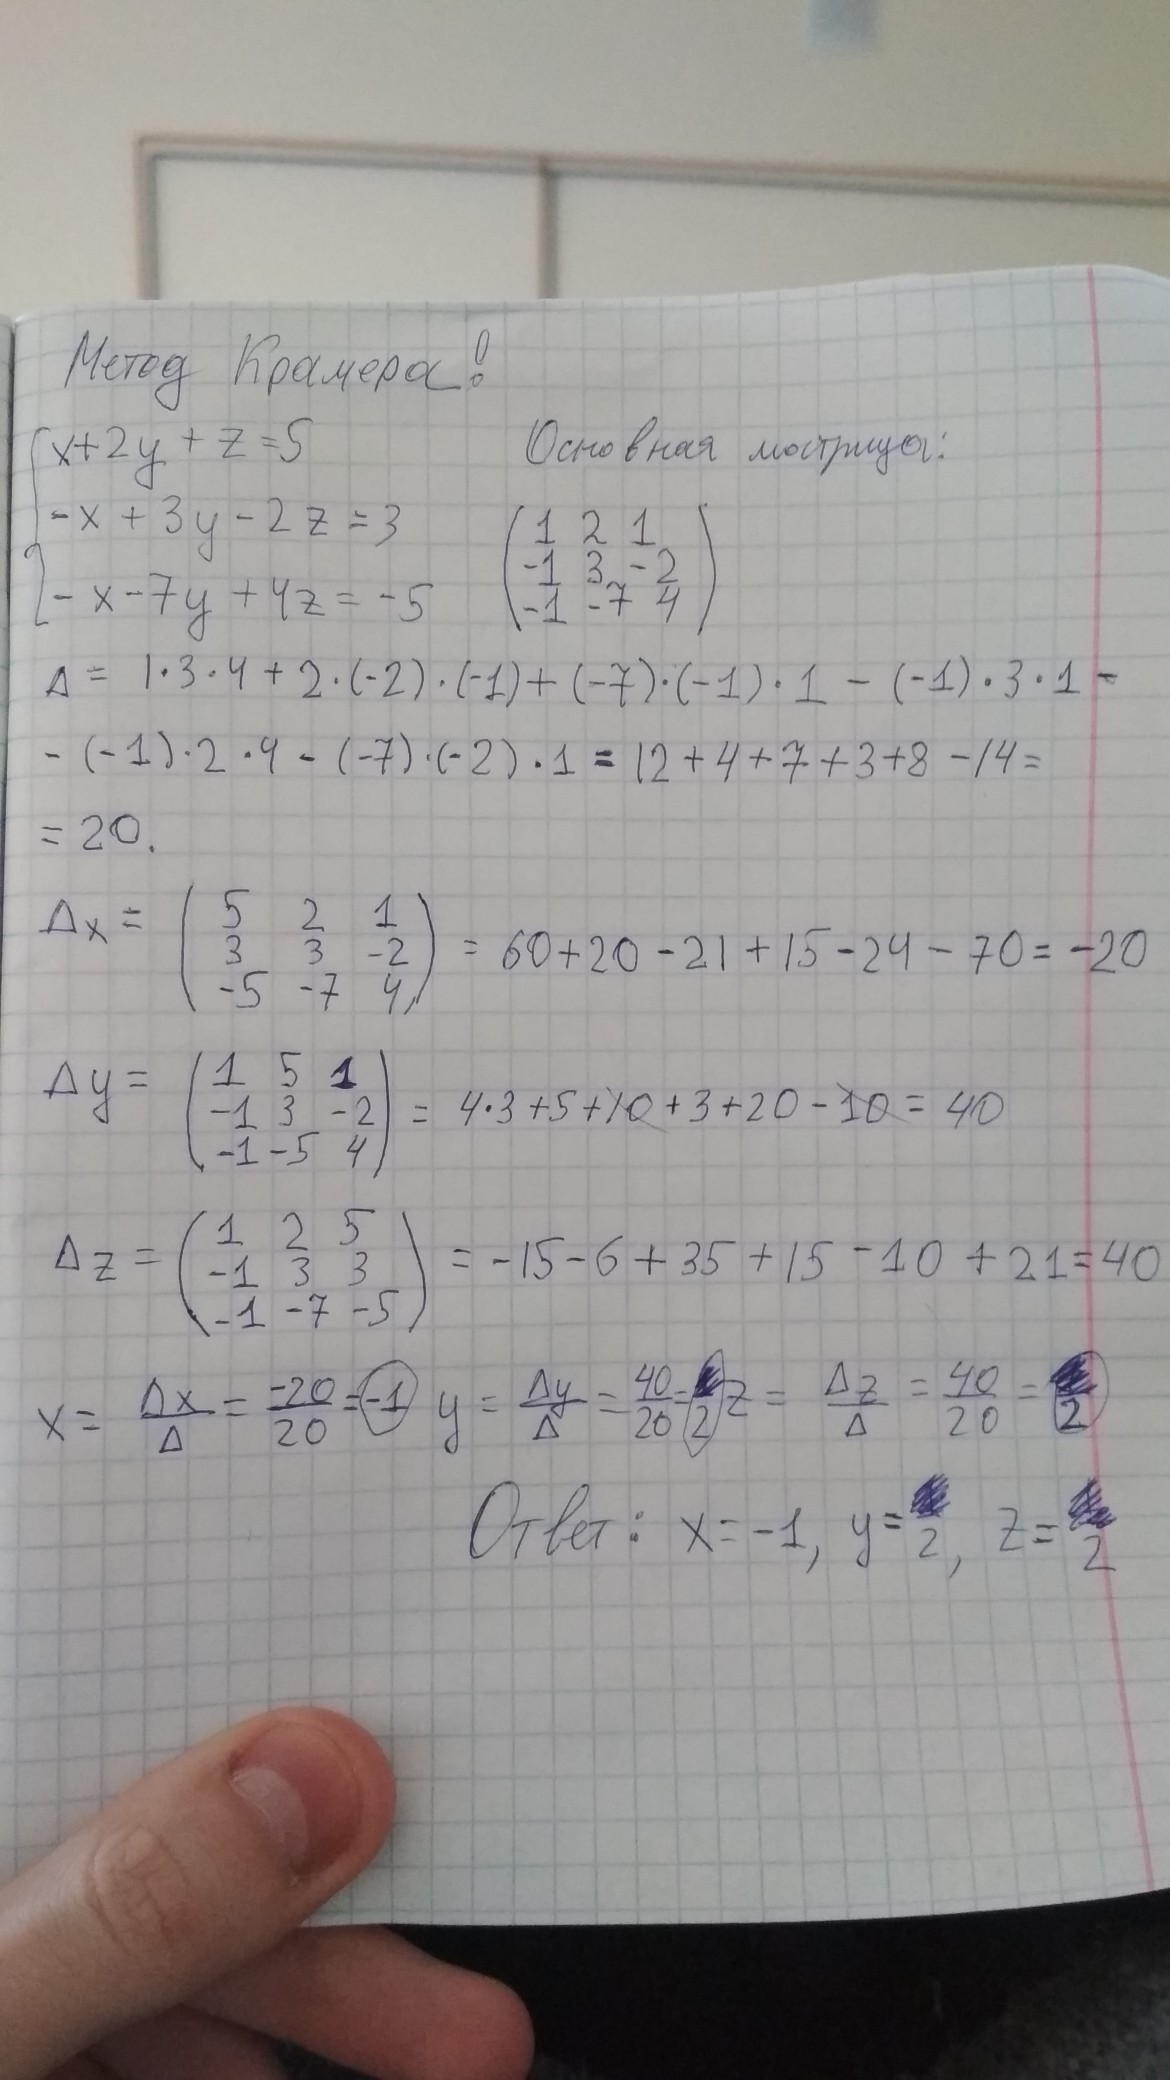 Метод Крамера!
x+2y+z=5
-x+3y-2z=3
-x-7y+4z=-5
Основная матрица:
1 2 1
-1 3 -2
-1 -7 4
Δ = 1·3·4+2·(-2)·(-1)+(-7)·(-1)·1-(-1)·3·1-
-(-1)·2·4-(-7)·(-2)·1=12+4+7+3+8-14=
=20.
Δx = (5 2 1
3 3 -2
-5 -7 4) = 60+20-21+15-24-70=-20
Δy = (1 5 1
-1 3 -2
-1 -5 4) = 4·3+5+10+3+20-10=40
Δz = (1 2 5
-1 3 3
-1 -7 -5) = -15-6+35+15-10+21=40
x = Δx/Δ = -20/20 = -1 y = Δy/Δ = 40/20 = 2 z = Δz/Δ = 40/20 = 2
Ответ: x=-1, y=2, z=2